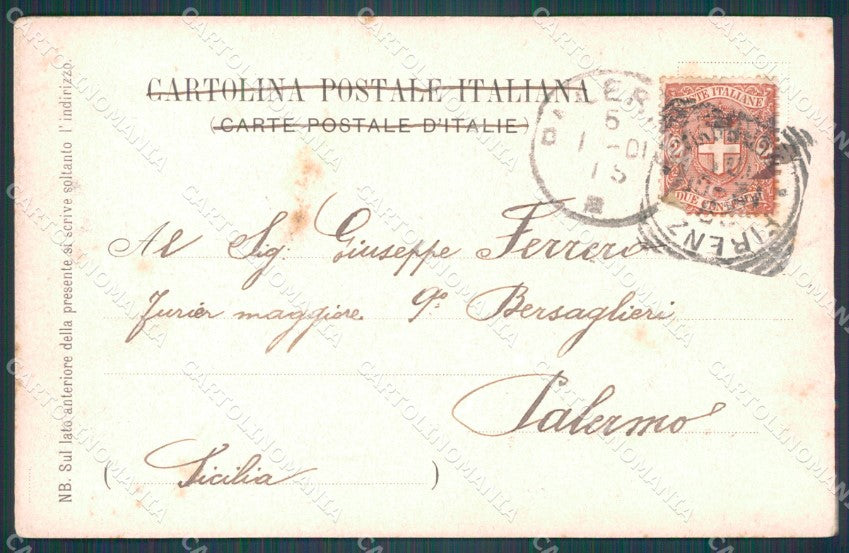 CARTOLINA POSTALE ITALIANA
(CARTE POSTALE D'ITALIE)
POSTE ITALIANE
2
2
DUE CENTESIMI
PALERMO
5
1-DI
15
FIRENZE
Al Sig. Giuseppe Ferrero
Furier maggiore 9º Bersaglieri
Palermo
(Sicilia)
NB. Sul lato anteriore della presente si scrive soltanto l'indirizzo.
CARTOLINOMANIA